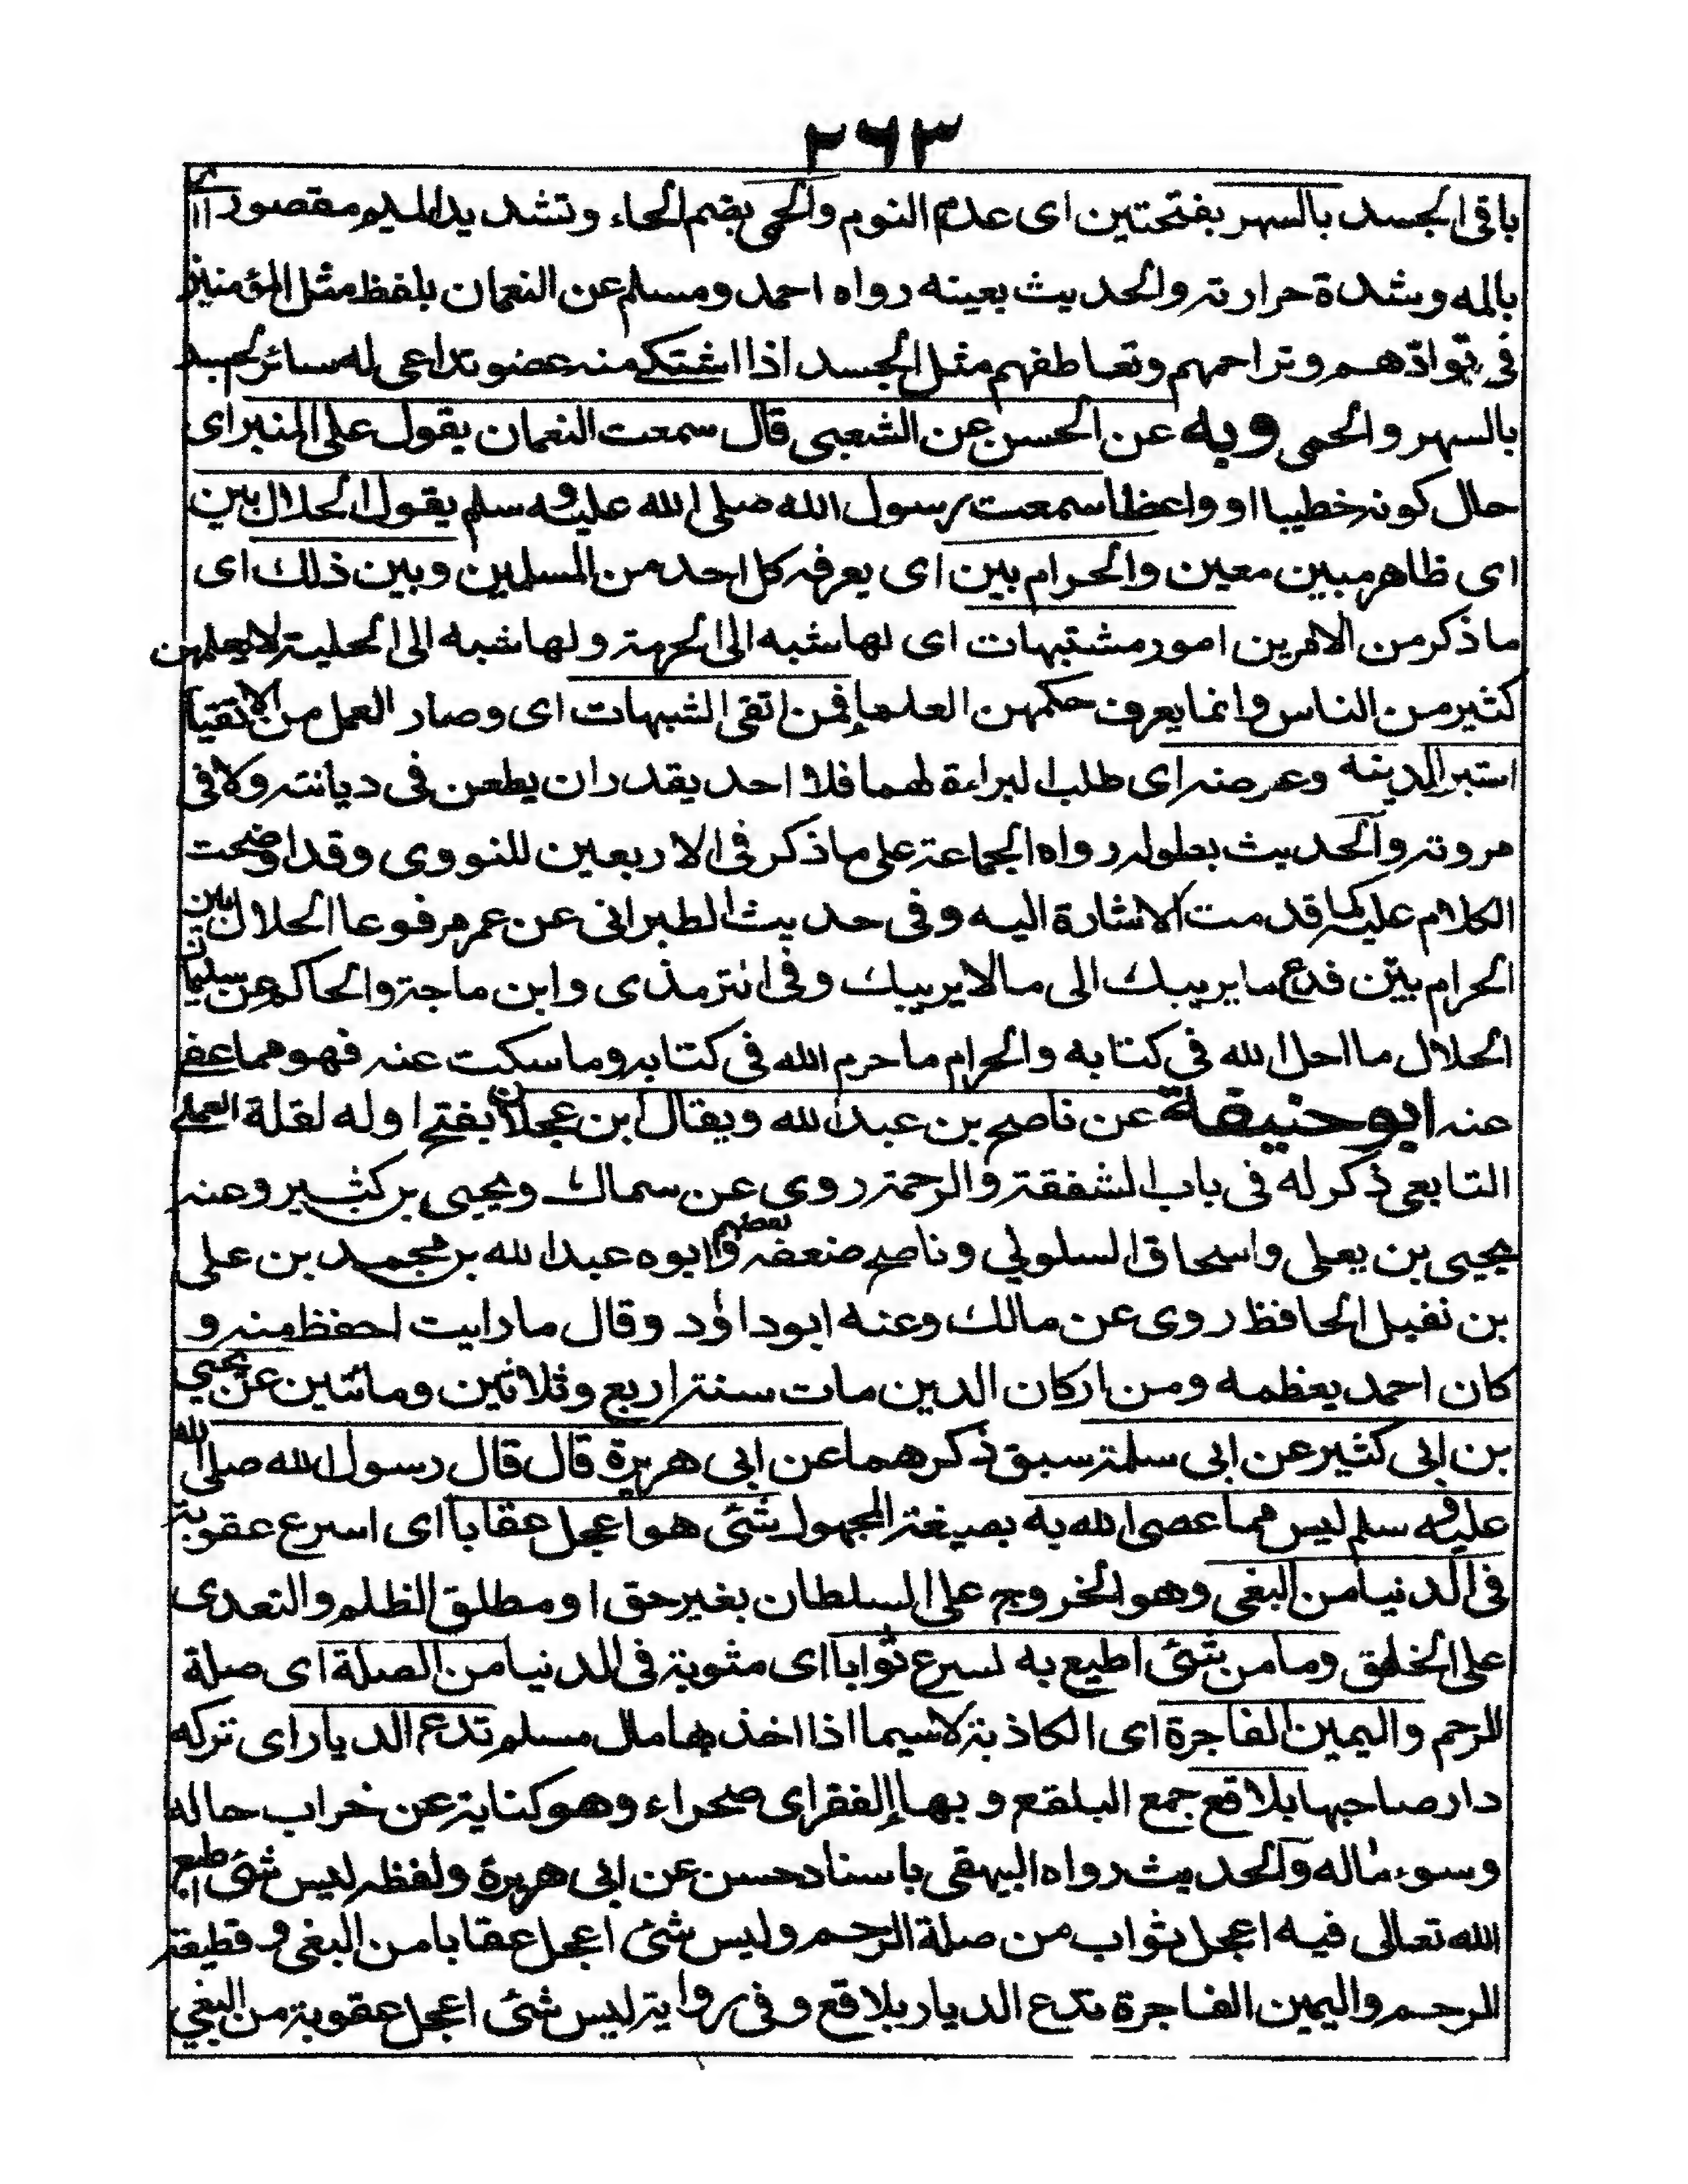 ٢٦٣
باقى الجسد بالسهر بفتحتين اى عدم النوم والحمى بضم الحاء وتشديد الميم مقصورا اى
بالمه وشدة حرارته والحديث بعينه رواه احمد ومسلم عن النعمان بلفظ مثل المؤمنين
فى توادّهم وتراحمهم وتعاطفهم مثل الجسد اذا اشتكى منه عضو تداعى له سائر الجسد
بالسهر والحمى وبه عن الحسن عن الشعبى قال سمعت النعمان يقول على المنبر اى
حال كونه خطيبا او واعظا سمعت رسول الله صلى الله عليه وسلم يقول الحلال بين
اى ظاهر مبين معين والحرام بين اى يعرفه كل احد من المسلمين وبين ذلك اى
ما ذكر من الامرين امور مشتبهات اى لها شبه الى الحرمة ولها شبه الى الحلية لا يعلمهن
كثير من الناس وانما يعرف حكمهن العلماء فمن اتقى الشبهات اى وصار العمل من الاتقياء
استبرالدينه وعرضه اى طلب البراءة لهما فلا احد يقدر ان يطعن فى ديانته ولا فى
مروته والحديث بطوله رواه الجماعة على ما ذكر فى الاربعين للنووى وقد اوضحت
الكلام عليه كما قدمت الاشارة اليه وفى حديث الطبرانى عن عمر مرفوعا الحلال بين
الحرام بيّن فدع ما يريبك الى مالا يريبك وفى الترمذى وابن ماجة والحاكم عن سليمان
الحلال ما احل الله فى كتابه والحرام ما حرم الله فى كتابه وما سكت عنه فهو مما عفى
عنه ابو حنيفة عن ناصح بن عبدالله ويقال ابن عجلان بفتح اوله لقلة العملى
التابعى ذكر له فى باب الشفقة والرحمة روى عن سماك ويحيى بن كثير وعنه
يحيى بن يعلى واسحاق السلولي وناصح ضعفه بعضهم وابوه عبدالله بن محمد بن على
بن نفيل الحافظ روى عن مالك وعنه ابوداؤد وقال ما رايت احفظ منه و
كان احمد يعظمه ومن اركان الدين مات سنة اربع وثلاثين ومائتين عن يحيي
بن ابى كثير عن ابى سلمة سبق ذكرهما عن ابى هريرة قال قال رسول الله صلى الله
عليه وسلم ليس مما عصى الله به بصيغة المجهول شئ هو اعجل عقابا اى اسرع عقوبة
فى الدنيا من البغى وهو الخروج على السلطان بغير حق او مطلق الظلم والتعدى
على الخلق وما من شئ اطيع به لسرع ثوابا اى مثوبة فى الدنيا من الصلة اى صلة
الرحم واليمين الفاجرة اى الكاذبة لاسيما اذا اخذ بها مال مسلم تدع الديار اى تركه
دار صاحبها بلاقع جمع البلقع و بهاء الفقر اى صحراء وهو كناية عن خراب حاله
وسوء ماله والحديث رواه البيهقى باسناد حسن عن ابى هريرة ولفظه ليس شئ اطيع
الله تعالى فيه اعجل ثواب من صلة الرحم وليس شئ اعجل عقابا من البغى و قطيعة
الرحم واليمين الفاجرة تدع الديار بلاقع وفى رواية ليس شئ اعجل عقوبة من البغي